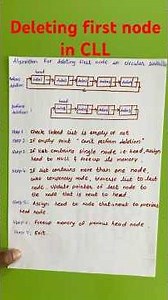 Deleting first node
in CLL
Algorithm for deleting first node in circular
head
before
deletion
head
deletion:
Step 1: Check linked list is empty or not
Step 2: If empty print "Can't perform deletion"
Step 3: If list contains single node i.e head, assign
head to NULL & free up its memory
Step 4: If list contains more than one node,
node, traverse list to last
node. Update pointer of last node to
the node that is next to head.
Step 5: Assign head to node that is next to previous
head node.
Step 6: Freeup memory of previous head node
Step 7: Exit.